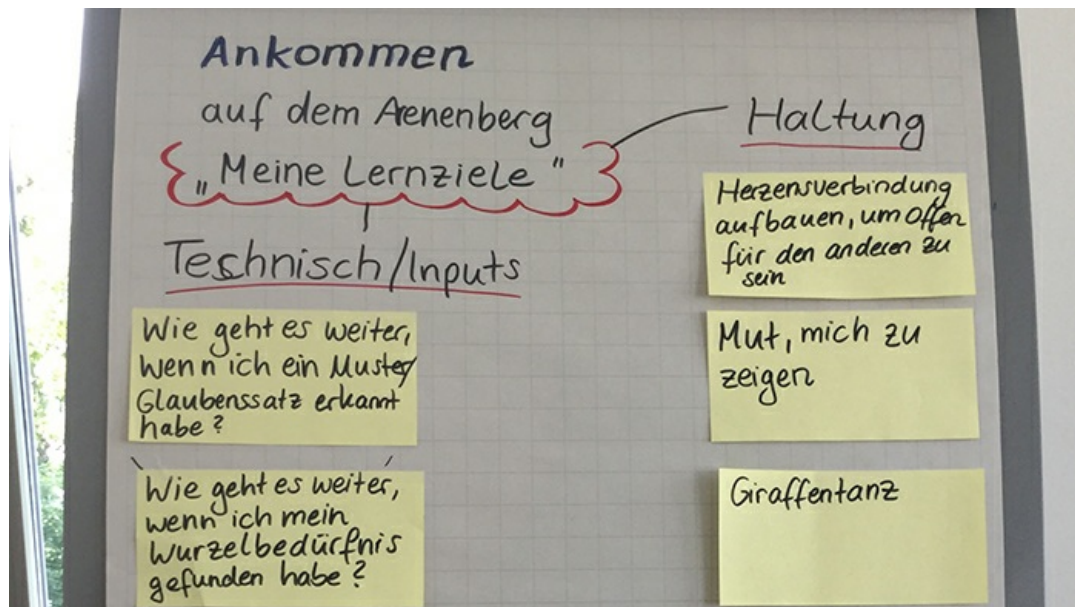 Ankommen
auf dem Arenenberg
„Meine Lernziele"
Haltung
Technisch/Inputs
Wie geht es weiter,
wenn ich ein Muster/
Glaubenssatz erkannt
habe?
Wie geht es weiter,
wenn ich mein
Wurzelbedürfnis
gefunden habe?
Herzensverbindung
aufbauen, um offen
für den anderen zu
sein
Mut, mich zu
zeigen
Giraffentanz